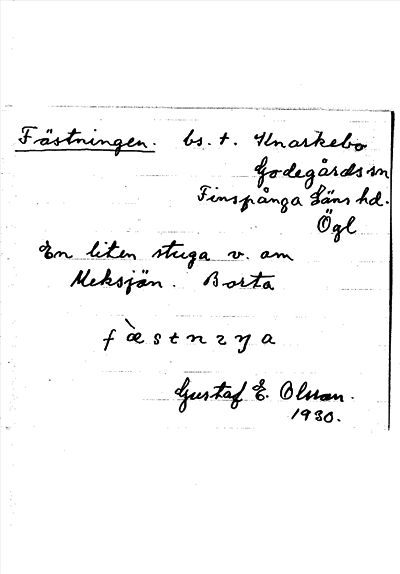 Fästningen. bs. t. Knarkebo
Godegårds sn
Finspånga Läns hd.
Ögl
En liten stuga v. om
Meksjön. Borta
f æ̀ s t n ɪ ŋ a
Gustaf E. Olsson.
1930.